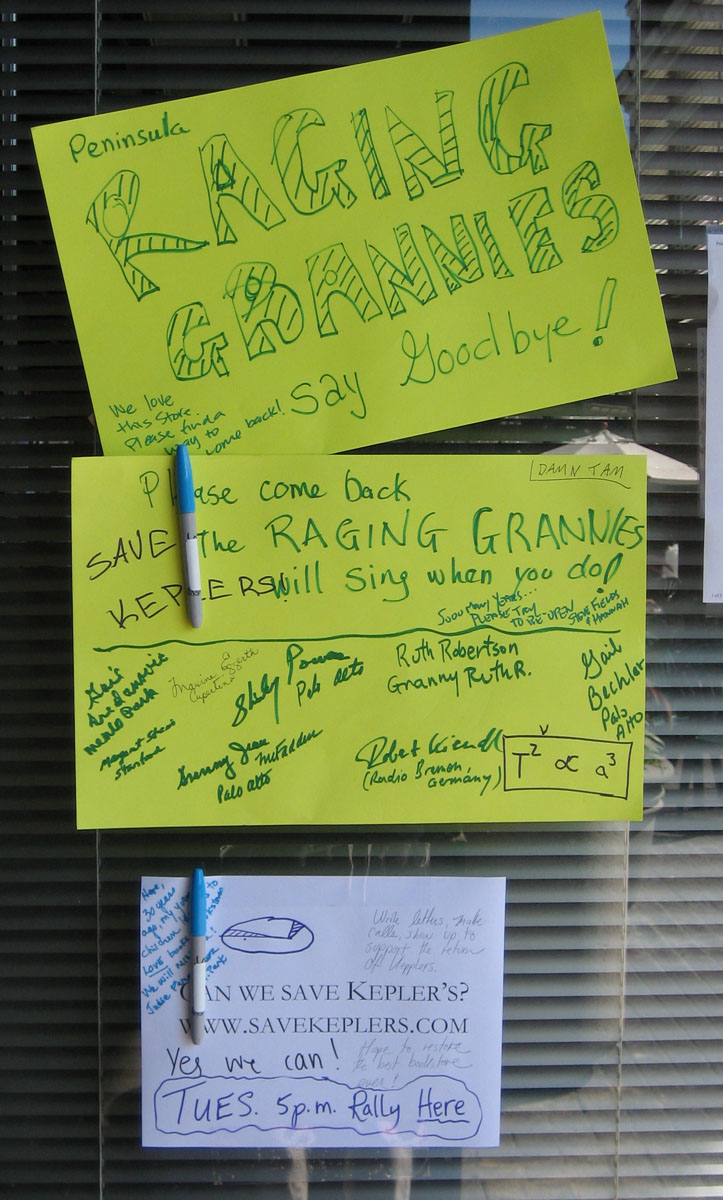 Peninsula
RAGING
GRANNIES
say Goodbye!
We love
this store.
Please find a
way to
come back!
DAMN TAM
Please come back
SAVE
KEPLERS!
the RAGING GRANNIES
will sing when you do!
SOOO MANY YEARS...
PLEASE TRY
TO BE OPEN
STEVE FIELDS
& HANNAH
Gail
Menlo Park
Margaret
Stanford
Cupertino
Shely
Palo Alto
Ruth Robertson
Granny Ruth R.
Gail
Bechler
Palo
Alto
Granny Jean McFadden
Palo Alto
Robert
(Radio Bremen,
Germany)
T² ∝ a³
Here,
30 years
ago, my
children
Love
We will
Write letters, make
calls, show up to
support the return
of Kepplers.
CAN WE SAVE KEPLER'S?
WWW.SAVEKEPLERS.COM
Yes we can!
Hope to restore
the best bookstore
ever!
TUES. 5p.m. Rally Here